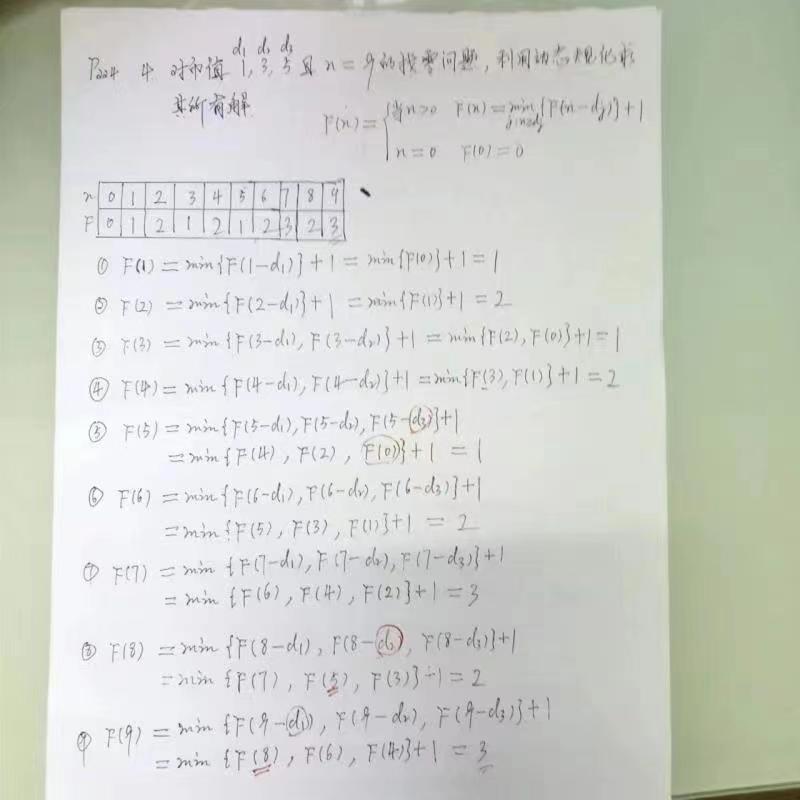 d₁ d₂ d₃
P224 4 对币值 1, 3, 5 且 n = 9 的找零问题, 利用动态规化求
其所有解
F(n) = { 当n>0 F(n) = min{F(n-dj)}+1
j:n≥dj
n=0 F(0)=0
n 0 1 2 3 4 5 6 7 8 9
F 0 1 2 1 2 1 2 3 2 3
① F(1) = min{F(1-d₁)}+1 = min{F(0)}+1 = 1
② F(2) = min{F(2-d₁)}+1 = min{F(1)}+1 = 2
③ F(3) = min{F(3-d₁), F(3-d₂)}+1 = min{F(2), F(0)}+1 = 1
④ F(4) = min{F(4-d₁), F(4-d₂)}+1 = min{F(3), F(1)}+1 = 2
⑤ F(5) = min{F(5-d₁), F(5-d₂), F(5-d₃)}+1
= min{F(4), F(2), F(0)}+1 = 1
⑥ F(6) = min{F(6-d₁), F(6-d₂), F(6-d₃)}+1
= min{F(5), F(3), F(1)}+1 = 2
⑦ F(7) = min{F(7-d₁), F(7-d₂), F(7-d₃)}+1
= min{F(6), F(4), F(2)}+1 = 3
⑧ F(8) = min{F(8-d₁), F(8-d₂), F(8-d₃)}+1
= min{F(7), F(5), F(3)}+1 = 2
⑨ F(9) = min{F(9-d₁), F(9-d₂), F(9-d₃)}+1
= min{F(8), F(6), F(4)}+1 = 3